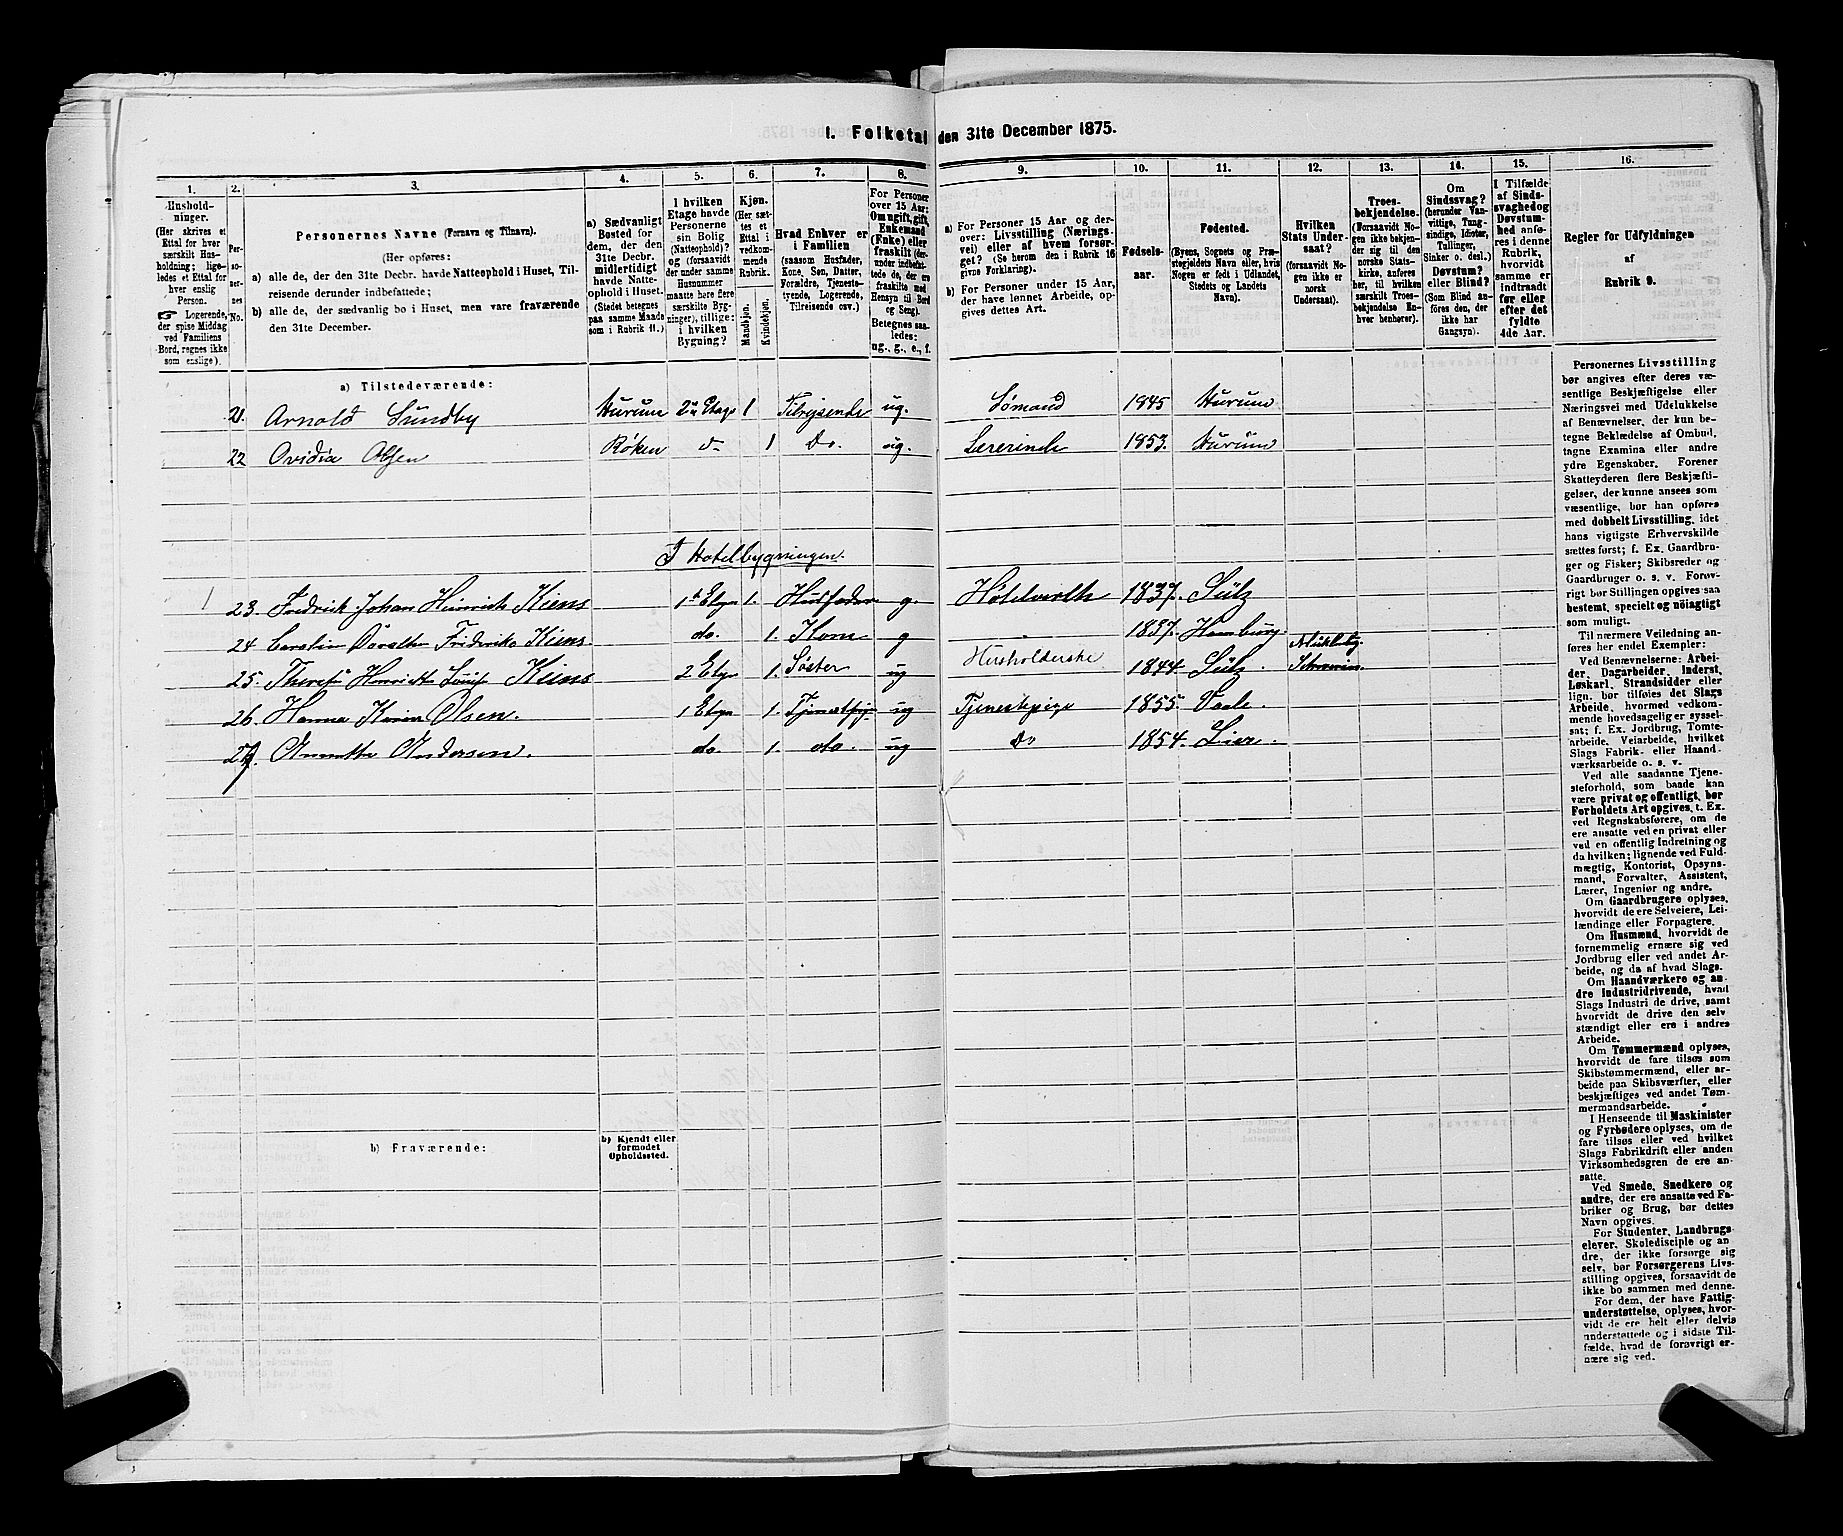 1. Folketal den 31te December 1875.
1.
2.
3.
4.
5.
6.
7.
8.
9.
10.
11.
12.
13.
14.
15.
16.
Hushold-
ninger.
(Her skrives et
Ettal for hver
særskilt Hus-
holdning; lige-
ledes et Ettal for
hver enslig
Person.
☞ Logerende,
der spise Middag
ved Familiens
Bord, regnes ikke
som enslige).
Per-
so-
ner-
nes
No.
Personernes Navne (Fornavn og Tilnavn).
(Her opføres:
a) alle de, der den 31te Decbr. havde Natteophold i Huset, Til-
reisende derunder indbefattede;
b) alle de, der sædvanlig bo i Huset, men vare fraværende
den 31te December.
a) Sædvanligt
Bosted for
dem, der den
31te Decbr.
midlertidigt
havde Natte-
ophold i Huset.
(Stedet betegnes
paa samme Maade
som i Rubrik 11.)
I hvilken
Etage havde
Personerne
sin Bolig
(Natteophold)?
og (forsaavidt
der under samme
Husnummer
maatte høre flere
særskilte Byg-
ninger), tillige:
i hvilken
Bygning?
Kjøn.
(Her sæt-
tes et
Ettal i
vedkom-
mende
Rubrik.
Mandkjøn.
Kvindekjøn.
Hvad Enhver er
i Familien
(saasom Husfader,
Kone, Søn, Datter,
Forældre, Tjeneste-
tyende, Logerende,
Tilreisende osv.)
For Personer
over 15 Aar:
Om ugift, gift,
Enkemand
(Enke) eller
fraskilt (der-
under indbefat-
tede de, der ere
fraskilte med
Hensyn til Bord
og Seng).
Betegnes saa-
ledes:
ug., g., e., f.
a) For Personer 15 Aar og der-
over: Livsstilling (Nærings-
vei) eller af hvem forsør-
get? (Se herom den i Rubrik 16
givne Forklaring).
b) For Personer under 15 Aar,
der have lønnet Arbeide, op-
gives dettes Art.
Fødsels-
aar.
Fødested.
(Byens, Sognets og Præ-
stegjeldets Navn eller, hvis
Nogen er født i Udlandet,
Stedets og Landets
Navn).
Hvilken
Stats Under-
saat?
(forsaavidt No-
gen ikke er
norsk
Undersaat).
Troes-
bekjendelse.
(Forsaavidt No-
gen ikke bekjen-
der sig til den
norske Stats-
kirke, anføres
her, til hvilken
særskilt Troes-
bekjendelse En-
hver henhører).
Om
Sindssvag?
(herunder Van-
vittige, Tung-
sindige, Idioter,
Tullinger,
Sinker o. desl.)
Døvstum?
eller Blind?
(Som Blind an-
føres den, der
ikke har
Gangsyn).
I Tilfælde
af Sinds-
svaghed og
Døvstum-
hed anfø-
res i denne
Rubrik,
hvorvidt
samme er
indtraadt
før eller
efter det
fyldte
4de Aar.
Regler for Udfyldningen
af
Rubrik 9.
a) Tilstedeværende:
21. Arnold Sundby Hurum 2n Etage 1 Tilreisende ug. Sømand 1845 Hurum
22 Ovidia Olsen Røken do 1 Do. ug. Lererinde 1853. Hurum
I Hotelbygningen.
1 23. Fredrik Johan Heinrich Kiens 1 Etge 1. Husfader g. Hotelverth 1837. Sülz
24 Carolin Fridrika Kiens. do. 1. Kone g 1837. Hamburg.
25. Henriette Louise Kiens 2 Etge 1. Søster ug Husholderske 1844. Sülz. Schwerin
26. Hanna Olsen. 1 Etge 1. ug Tjenestepige 1855. Vaale.
27. Annette Andersen. do 1. do. ug Do 1854. Lier.
b) Fraværende:
b) Kjendt eller
formodet
Opholdssted.
Personernes Livsstilling
bør angives efter deres væ-
sentlige Beskjæftigelse eller
Næringsvei med Udelukkelse
af Benævnelser, der kun be-
tegne Beklædelse af Ombud,
tagne Examina eller andre
ydre Egenskaber. Forener
Skatteyderen flere Beskjæfti-
gelser, der kunne ansees som
væsentlige, bør han opføres
med dobbelt Livsstilling, idet
hans vigtigste Erhvervskilde
sættes først; f. Ex. Gaardbru-
ger og Fisker; Skibsreder og
Gaardbruger o. s. v. Forøv-
rigt bør Stillingen opgives saa
bestemt, specielt og nøiagtigt
som muligt.
Til nærmere Veiledning an-
føres her endel Exempler:
Ved Benævnelserne: Arbei-
der, Dagarbeider, Inderst,
Løskarl, Strandsidder eller
lign. bør tilføies det Slags
Arbeide, hvormed vedkom-
mende hovedsagelig er syssel-
sat; f. Ex. Jordbrug, Tomte-
arbeide, Veiarbeide, hvilket
Slags Fabrik- eller Haand-
værksarbeide o. s. v.
Ved alle saadanne Tjene-
steforhold, som baade kan
være privat og offentligt, bør
Forholdets Art opgives, t. Ex.
ved Regnskabsførere, om de
ere ansatte ved en privat eller
ved en offentlig Indretning og
da hvilken; lignende ved Fuld-
mægtig, Kontorist, Opsyns-
mand, Forvalter, Assistent,
Lærer, Ingeniør og andre.
Om Gaardbrugere oplyses,
hvorvidt de ere Selveiere, Lei-
lændinge eller Forpagtere.
Om Husmænd, hvorvidt de
fornemmelig ernære sig ved
Jordbrug eller ved andet Ar-
beide, og da af hvad Slags.
Om Haandværkere og an-
dre industridrivende, hvad
Slags Industri de drive, samt
hvorvidt de drive den selv
stændigt eller ere i andres
Arbeide.
Om Tømmermænd oplyses,
hvorvidt de fare tilsøs som
Skibstømmermænd, eller ar-
beide paa Skibsværfter, eller
beskjæftiges ved andet Tøm-
mermandsarbeide.
I Henseende til Maskinister
og Fyrbødere oplyses, om de
fare tilsøs eller ved hvilket
Slags Fabrikdrift eller anden
Virksomhedsgren de ere an-
satte.
Ved Smede, Snedkere og
andre, der ere ansatte ved Fa-
briker og Brug, bør dettes
Navn opgives.
For Studenter, Landbrugs-
elever, Skoledisciple og an-
dre, der ikke forsørge sig
selv, bør Forsørgerens Livs-
stilling opgives, forsaavidt de
ikke bo sammen med denne.
For dem, der have Fattig-
understøttelse, oplyses, hvor-
vidt de ere helt eller delvis
understøttede og i sidste Til-
fælde, hvad de forøvrigt er-
nære sig ved.